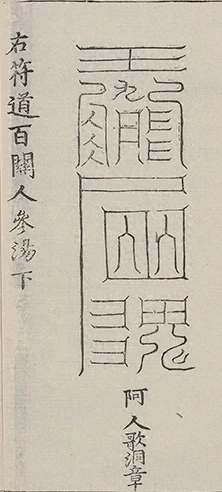 阿人歌洞章
右符道百關人參湯下